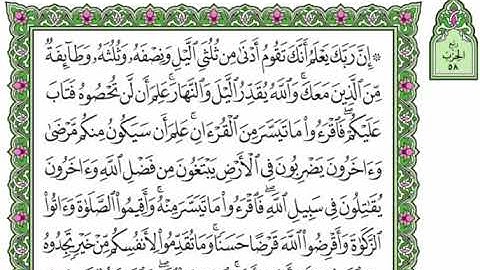 ۞ إِنَّ رَبَّكَ يَعْلَمُ أَنَّكَ تَقُومُ أَدْنَىٰ مِن ثُلُثَىِ ٱلَّيْلِ وَنِصْفَهُۥ وَثُلُثَهُۥ وَطَآئِفَةٌ
مِّنَ ٱلَّذِينَ مَعَكَ ۚ وَٱللَّهُ يُقَدِّرُ ٱلَّيْلَ وَٱلنَّهَارَ ۚ عَلِمَ أَن لَّن تُحْصُوهُ فَتَابَ
عَلَيْكُمْ ۖ فَٱقْرَءُوا۟ مَا تَيَسَّرَ مِنَ ٱلْقُرْءَانِ ۚ عَلِمَ أَن سَيَكُونُ مِنكُم مَّرْضَىٰ
وَءَاخَرُونَ يَضْرِبُونَ فِى ٱلْأَرْضِ يَبْتَغُونَ مِن فَضْلِ ٱللَّهِ ۙ وَءَاخَرُونَ
يُقَٰتِلُونَ فِى سَبِيلِ ٱللَّهِ ۖ فَٱقْرَءُوا۟ مَا تَيَسَّرَ مِنْهُ ۚ وَأَقِيمُوا۟ ٱلصَّلَوٰةَ وَءَاتُوا۟
ٱلزَّكَوٰةَ وَأَقْرِضُوا۟ ٱللَّهَ قَرْضًا حَسَنًا ۚ وَمَا تُقَدِّمُوا۟ لِأَنفُسِكُم مِّنْ خَيْرٍ تَجِدُوهُ
ربع
الحزب
٥٨